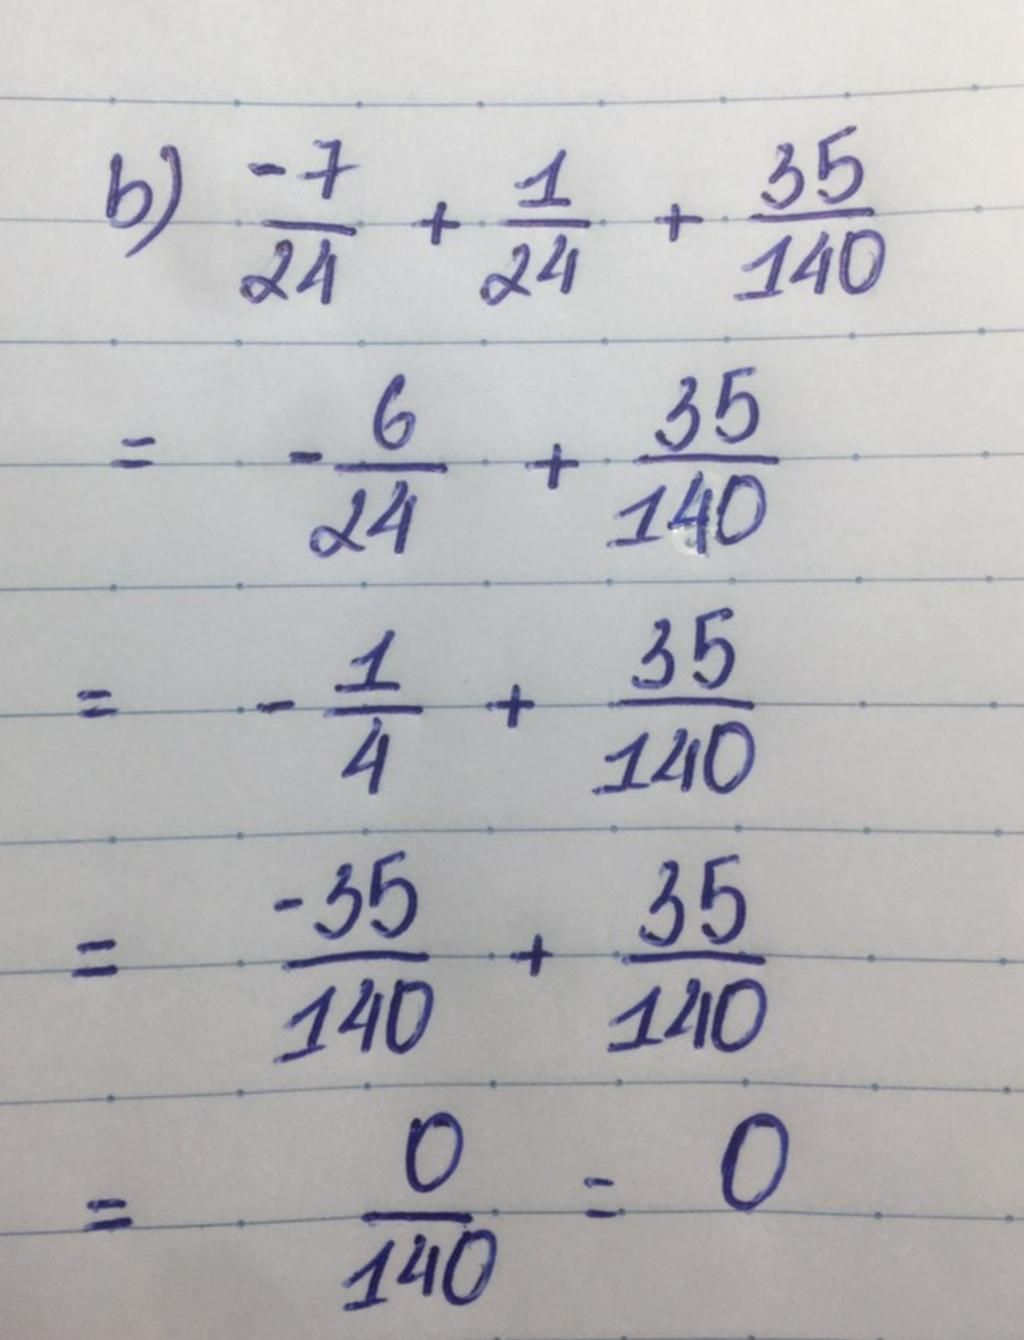 b) -7/24 + 1/24 + 35/140
= -6/24 + 35/140
= -1/4 + 35/140
= -35/140 + 35/140
= 0/140 = 0